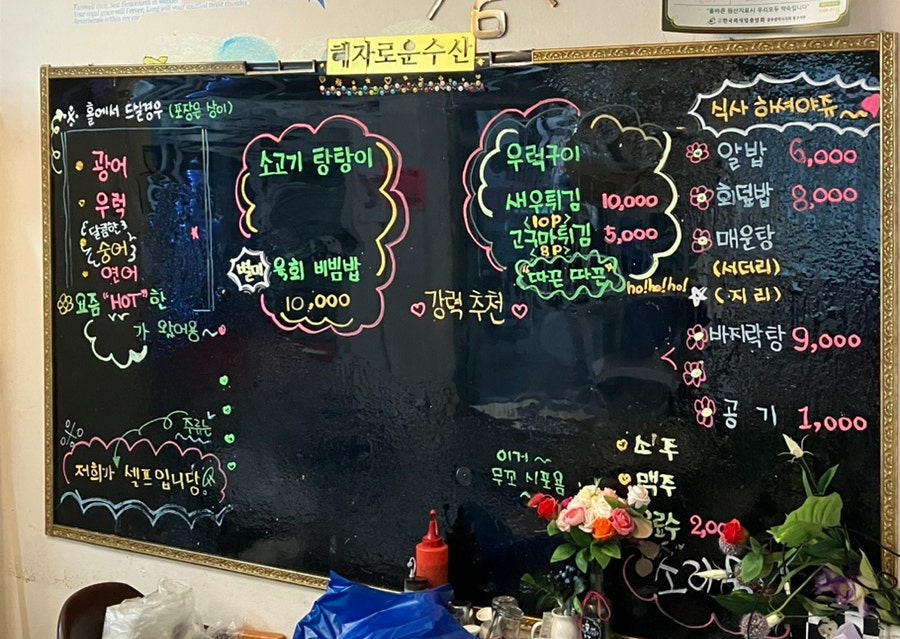 "올바른 원산지표시 우리모두 약속입니다"
혜자로운수산
홀에서 드실경우 (포장은 낭이)
광어
우럭
달큼한
숭어
연어
요즘 "HOT"한
가 왔어용~
주류는
저희가 셀프입니당
소고기 탕탕이
별미 육회 비빔밥
10,000
우럭구이
새우튀김 10,000
<10P>
고구마튀김 5,000
<8P>
"따끈 따끈"
ho!ho!ho!
강력 추천
식사 하셔야쥬~~
알밥 6,000
회덮밥 8,000
매운탕
(서더리)
(지리)
바지락탕 9,000
공기 1,000
이거~
무꼬 시포용
소주
맥주
료수 2,00